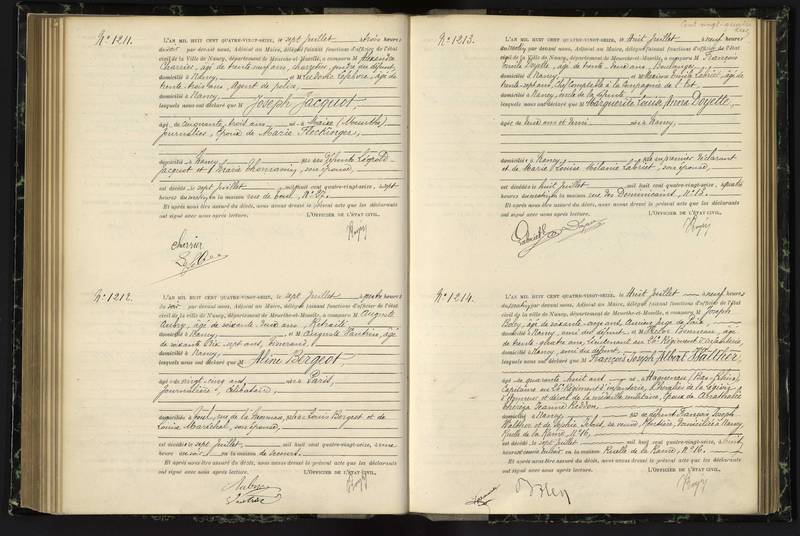 No 1211.
L'AN MIL HUIT CENT QUATRE-VINGT-SEIZE, le sept Juillet à trois heures
du soir par devant nous, Adjoint au Maire, délégué faisant fonctions d'officier de l'état
civil de la Ville de Nancy, département de Meurthe-et-Moselle, a comparu M Alexandre
âgé de trente
domicilié à Nancy et M Ludovic Lefebvre, âgé de
trente-trois ans, Agent de police,
domicilié à Nancy
lesquels nous ont déclaré que M Joseph Jacquot,
âgé de cinquante trois ans né à Maixe (Meurthe),
Journalier, époux de Marie
domicilié à Nancy fils des défunts Léopold
Jacquot et Marie son épouse,
est décédé le sept Juillet mil huit cent quatre-vingt-seize, à sept
heures du matin en la maison rue de Toul, No 27.
Et après nous être assuré du décès, nous avons dressé le présent acte que les déclarants
ont signé avec nous après lecture. L'OFFICIER DE L'ÉTAT CIVIL,
No 1212.
L'AN MIL HUIT CENT QUATRE-VINGT-SEIZE, le sept Juillet à quatre heures
du soir par devant nous, Adjoint au Maire, délégué faisant fonctions d'officier de l'état
civil de la Ville de Nancy, département de Meurthe-et-Moselle, a comparu M Auguste
Aubry, âgé de soixante deux ans, Retraité
domicilié à Nancy et M Auguste âgé
de soixante dix sept ans,
domicilié à Nancy
lesquels nous ont déclaré que M Aline Bergeot
âgée de vingt-cinq ans née à Paris,
Journalière, Célibataire,
domiciliée à Toul, rue de la fille de Louis Bergeot et de
Louise Maréchal, son épouse,
est décédée le sept Juillet mil huit cent quatre-vingt-seize, à une
heure du soir en la maison de Secours.
Et après nous être assuré du décès, nous avons dressé le présent acte que les déclarants
ont signé avec nous après lecture. L'OFFICIER DE L'ÉTAT CIVIL,
Aubry
Cent vingt-
No 1213.
L'AN MIL HUIT CENT QUATRE-VINGT-SEIZE, le huit Juillet à neuf heures
du matin par devant nous, Adjoint au Maire, délégué faisant fonctions d'officier de l'état
civil de la Ville de Nancy, département de Meurthe-et-Moselle, a comparu M François
Emile Doyette, âgé de trente ans, Boulanger,
domicilié à Nancy et M Emile Labriet, âgé de
trente-sept ans, Chef comptable à la Compagnie de l'Est
domicilié à Nancy, de la défunte
lesquels nous ont déclaré que M Marguerite Louise Anna Doyette,
âgée de deux ans et demi née à Nancy,
domiciliée à Nancy fille du premier déclarant
et de Marie Louise Mélanie Labriet, son épouse,
est décédée le huit Juillet mil huit cent quatre-vingt-seize, à quatre
heures du matin en la maison rue des Dominicains, No 13.
Et après nous être assuré du décès, nous avons dressé le présent acte que les déclarants
ont signé avec nous après lecture. L'OFFICIER DE L'ÉTAT CIVIL,
No 1214.
L'AN MIL HUIT CENT QUATRE-VINGT-SEIZE, le huit Juillet à neuf heures
du matin par devant nous, Adjoint au Maire, délégué faisant fonctions d'officier de l'état
civil de la Ville de Nancy, département de Meurthe-et-Moselle, a comparu M Joseph
âgé de soixante onze ans, Ancien Juge de Paix,
domicilié à Nancy, ami du défunt et M Victor âgé
de trente quatre ans, Lieutenant au 26e Régiment d'Infanterie,
domicilié à Nancy, ami du défunt
lesquels nous ont déclaré que M François Joseph Albert Walther
âgé de quarante huit ans né à Haguenau (Bas-Rhin),
Capitaine au 26e Régiment d'Infanterie, Chevalier de la Légion
d'Honneur et décoré de la médaille militaire, Époux de
Thérèse Jeanne
domicilié à Nancy fils de défunt François Joseph
Walther et de Sophie sa veuve, Rentière, domiciliée à Nancy,
Ruelle de la Ravine No 16,
est décédé le sept Juillet mil huit cent quatre-vingt-seize, à
heures en la maison Ruelle de la Ravine, No 16.
Et après nous être assuré du décès, nous avons dressé le présent acte que les déclarants
ont signé avec nous après lecture. L'OFFICIER DE L'ÉTAT CIVIL,